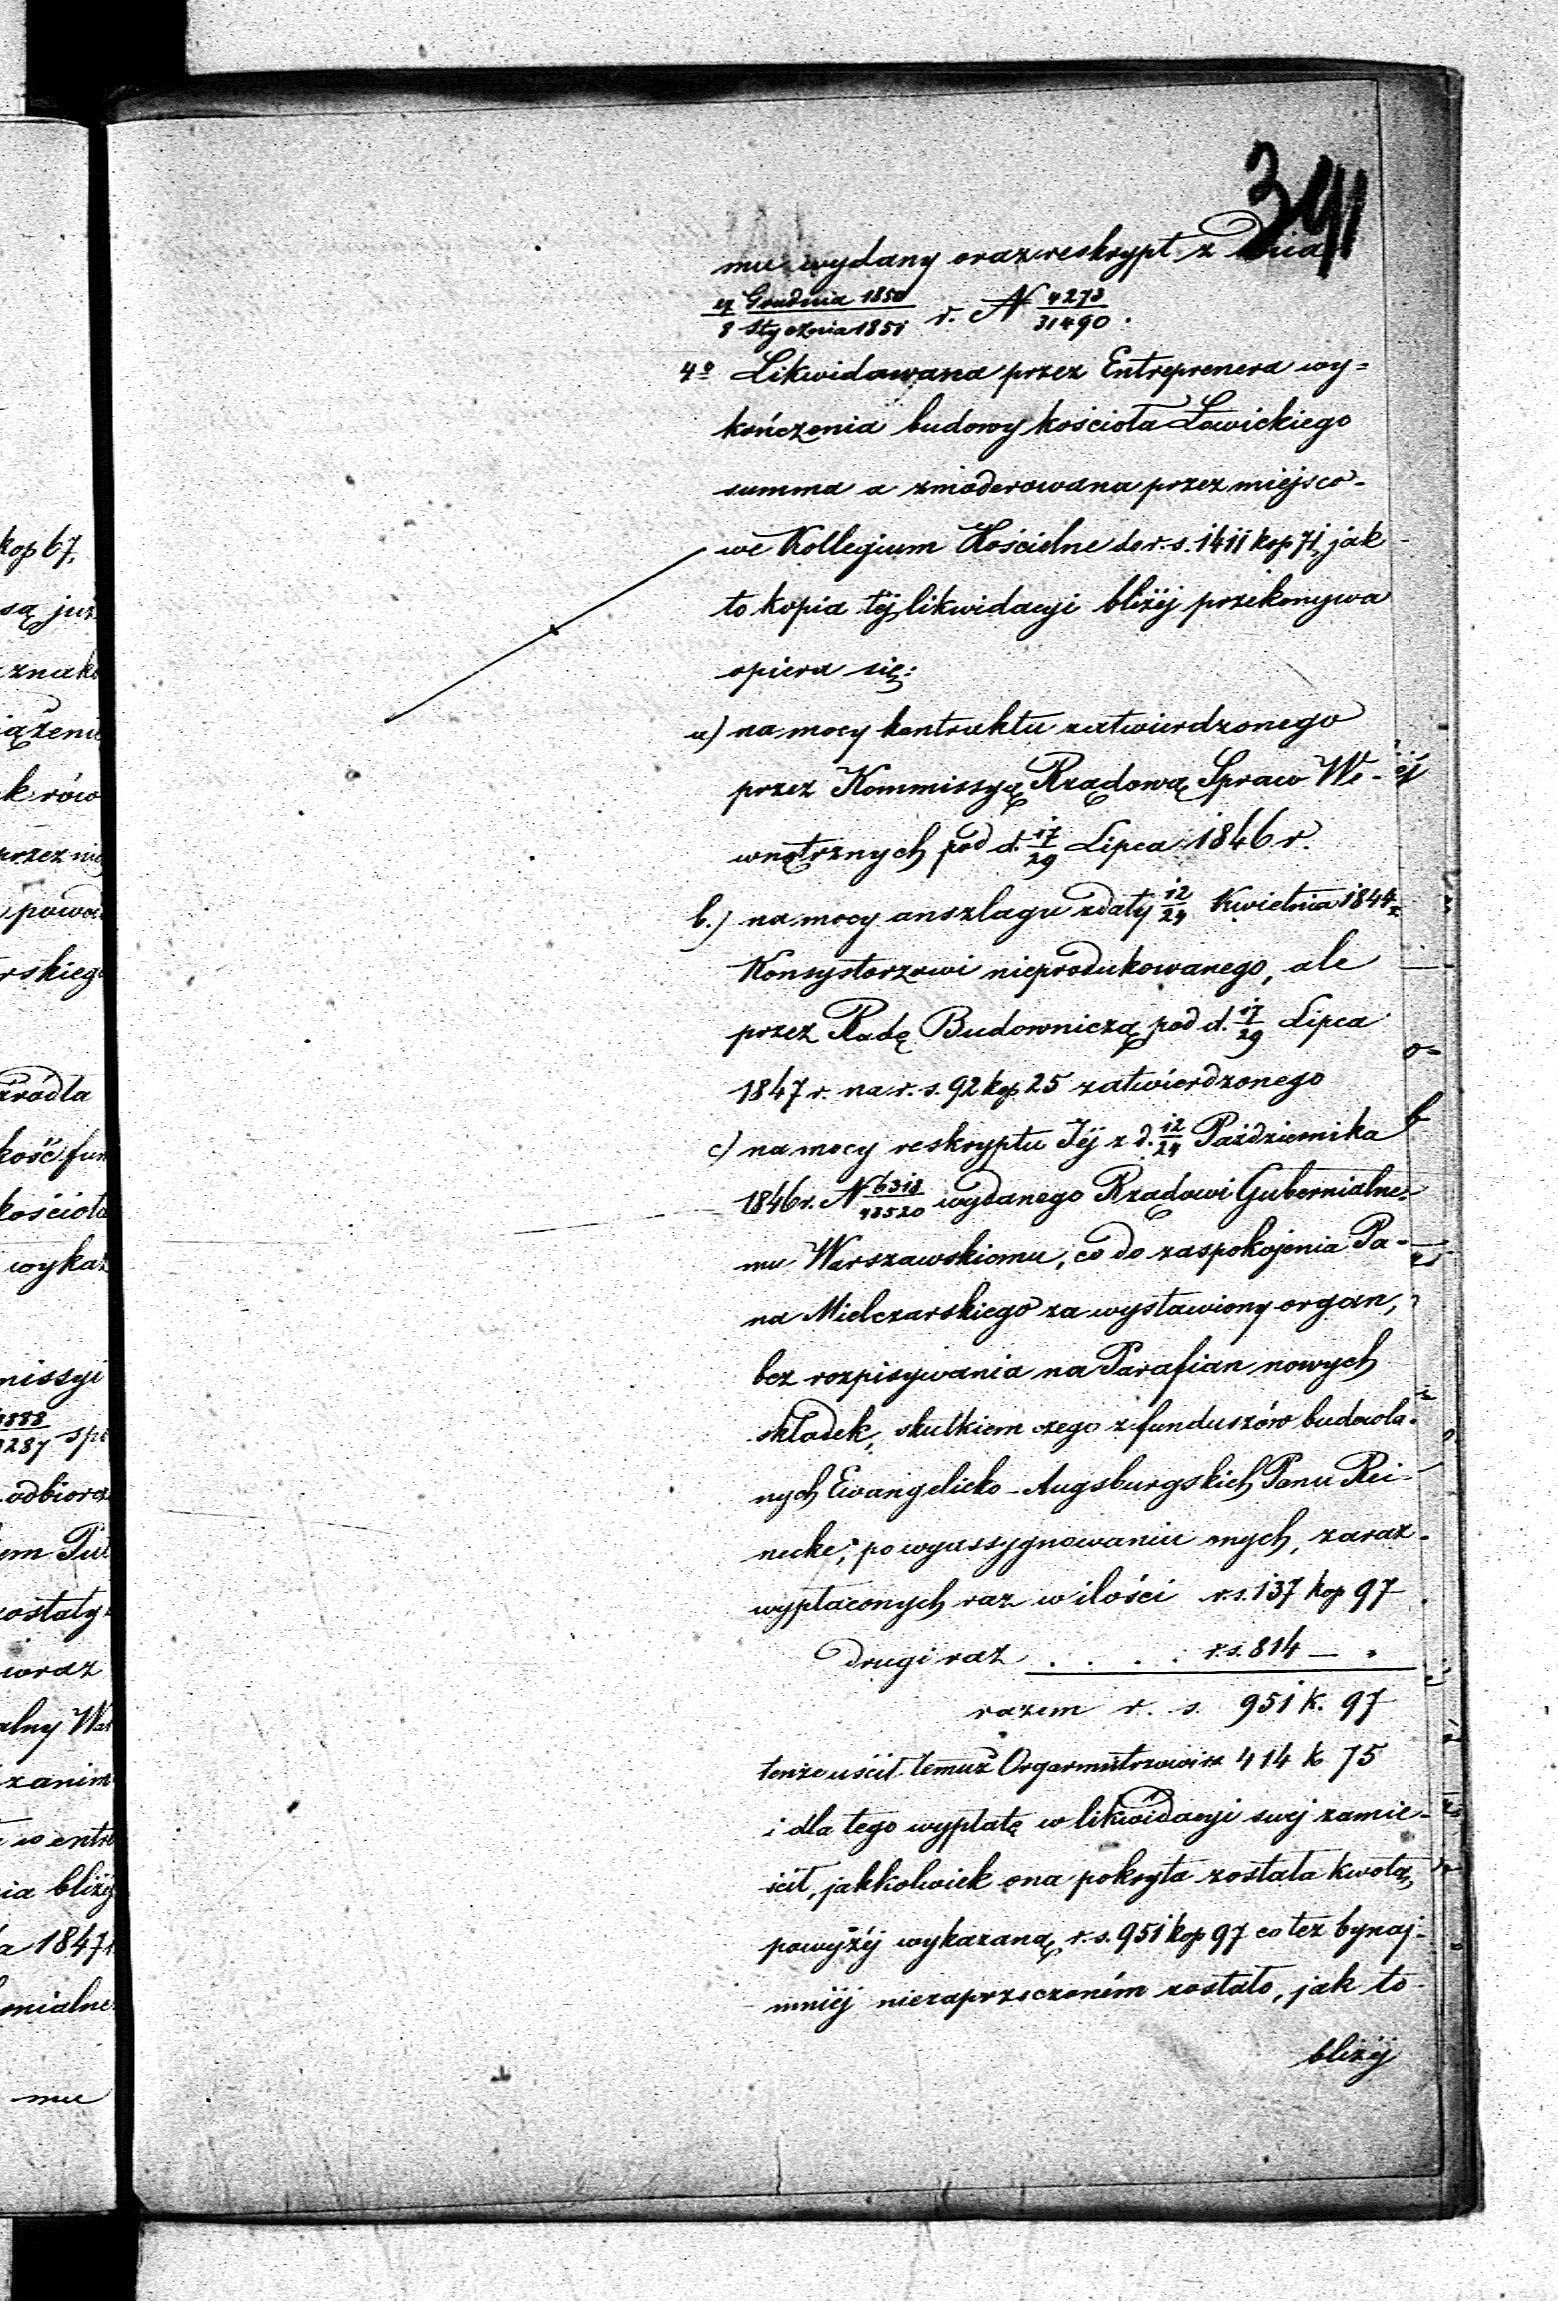 391
mu wydany oraz reskrypt z dnia
27 Grudnia 1850 / 8 Stycznia 1851 r. N 4273/31490.
4o Likwidowana przez Entreprenera wy=
kończenia budowy kościoła Łowickiego
summa a zmoderowana przez miejsco-
we Kollegium Kościelne do r. s. 1411 kop 71, jak
to kopia téj likwidacyi bliżéj przekonywa
opiera się:
a) na mocy kontraktu zatwierdzonego
przez Kommissyą Rządową Spraw We-
wnętrznych pod d. 17/29 Lipca 1846 r.
b.) na mocy anszlagu z daty 12/24 Kwietnia 1844
Konsystorzowi nieprodukowanego, ale
przez Radę Budowniczą pod d. 17/29 Lipca
1847 r. na r. s. 92 kop 25 zatwierdzonego
c) na mocy reskryptu Jéj z d. 12/24 Października
1846 r. N 6318/43520 wydanego Rządowi Gubernialne-
mu Warszawskiemu, co do zaspokojenia Pa-
na Mielczarskiego za wystawiony organ,
bez rozpisywania na Parafian nowych
składek, skutkiem czego z funduszów budowla-
nych Ewangelicko-Augsburgskich Panu Rei-
necke, po wyassygnowaniu onych, zaraz
wypłaconych raz w ilości r. s. 137 kop 97
drugi raz . . . . r. s. 814 — "
razem r. s. 951 k. 97
tenże uścił temuż Organmistrzowi rs 414 k 75
i dla tego wypłatę w likwidacyi swej zamie-
ścił, jakkolwiek ona pokryta została kwotą,
powyżéj wykazaną, r. s. 951 kop 97 co też bynaj-
mniéj niezaprzeczoném zostało, jak to
bliżéj